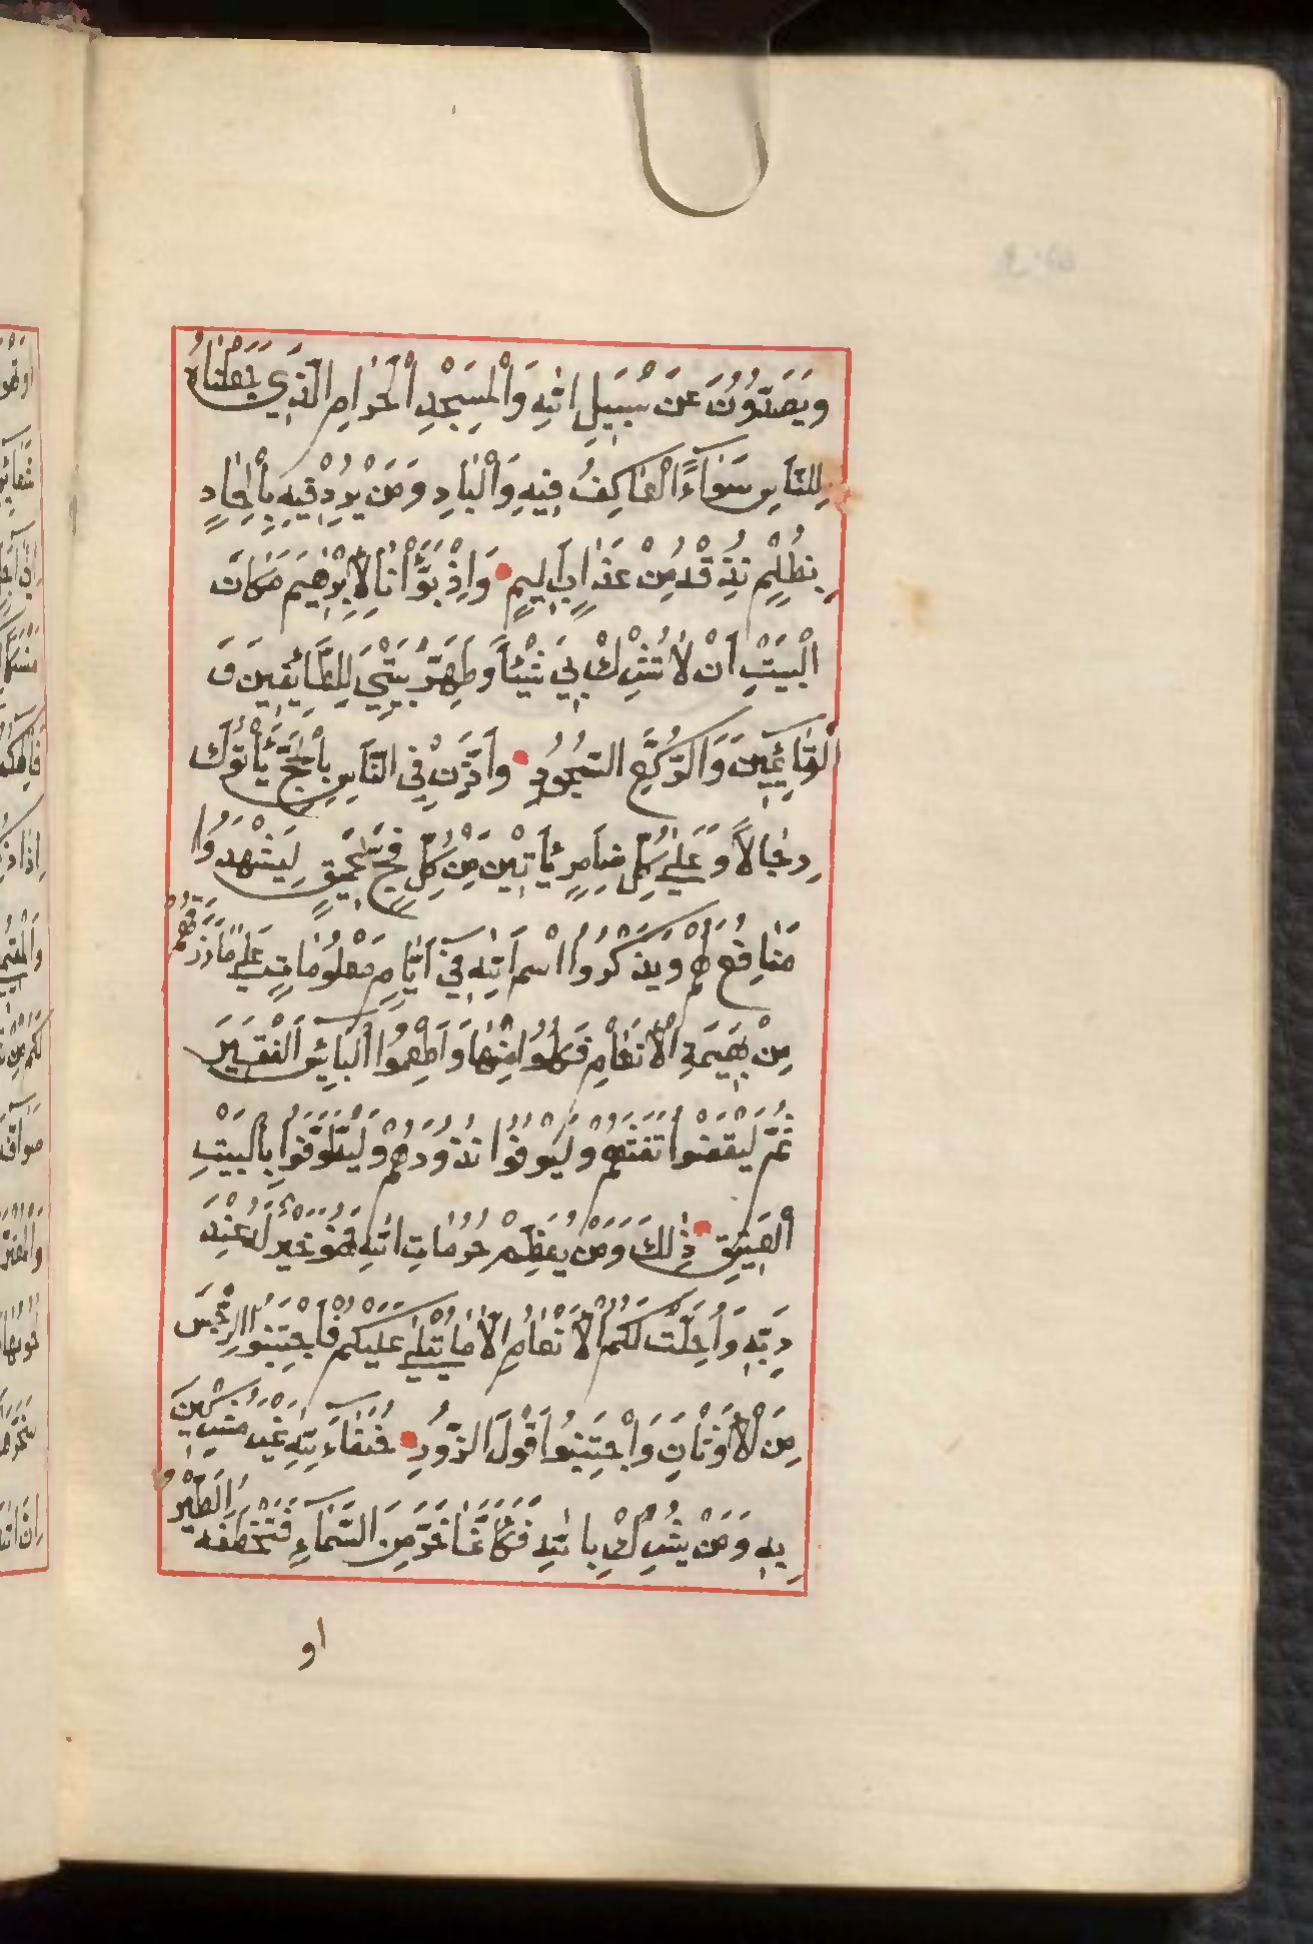 وَيَصُدُّونَ عَنْ سَبِيلِ اللّٰهِ وَالْمَسْجِدِ الْحَرَامِ الَّذِي جَعَلْنَاهُ
لِلنَّاسِ سَوَآءً الْعَاكِفُ فِيهِ وَالْبَادِ وَمَنْ يُرِدْ فِيهِ بِاِلْحَادٍ
بِظُلْمٍ نُذِقْهُ مِنْ عَذَابٍ اَلِيمٍ وَاِذْ بَوَّأْنَا لِاِبْرٰهِيمَ مَكَانَ
الْبَيْتِ اَنْ لَا تُشْرِكْ بِي شَيْئًا وَطَهِّرْ بَيْتِيَ لِلطَّآئِفِينَ وَ
الْقَآئِمِينَ وَالرُّكَّعِ السُّجُودِ وَاَذِّنْ فِي النَّاسِ بِالْحَجِّ يَأْتُوكَ
رِجَالًا وَعَلٰى كُلِّ ضَامِرٍ يَأْتِينَ مِنْ كُلِّ فَجٍّ عَمِيقٍ لِيَشْهَدُوا
مَنَافِعَ لَهُمْ وَيَذْكُرُوا اسْمَ اللّٰهِ فِي اَيَّامٍ مَعْلُومَاتٍ عَلٰى مَا رَزَقَهُمْ
مِنْ بَهِيمَةِ الْاَنْعَامِ فَكُلُوا مِنْهَا وَاَطْعِمُوا الْبَآئِسَ الْفَقِيرَ
ثُمَّ لْيَقْضُوا تَفَثَهُمْ وَلْيُوفُوا نُذُورَهُمْ وَلْيَطَّوَّفُوا بِالْبَيْتِ
الْعَتِيقِ ذٰلِكَ وَمَنْ يُعَظِّمْ حُرُمَاتِ اللّٰهِ فَهُوَ خَيْرٌ لَهُ عِنْدَ
رَبِّهِ وَاُحِلَّتْ لَكُمُ الْاَنْعَامُ اِلَّا مَا يُتْلٰى عَلَيْكُمْ فَاجْتَنِبُوا الرِّجْسَ
مِنَ الْاَوْثَانِ وَاجْتَنِبُوا قَوْلَ الزُّورِ حُنَفَآءَ لِلّٰهِ غَيْرَ مُشْرِكِينَ
بِهِ وَمَنْ يُشْرِكْ بِاللّٰهِ فَكَاَنَّمَا خَرَّ مِنَ السَّمَآءِ فَتَخْطَفُهُ الطَّيْرُ
او